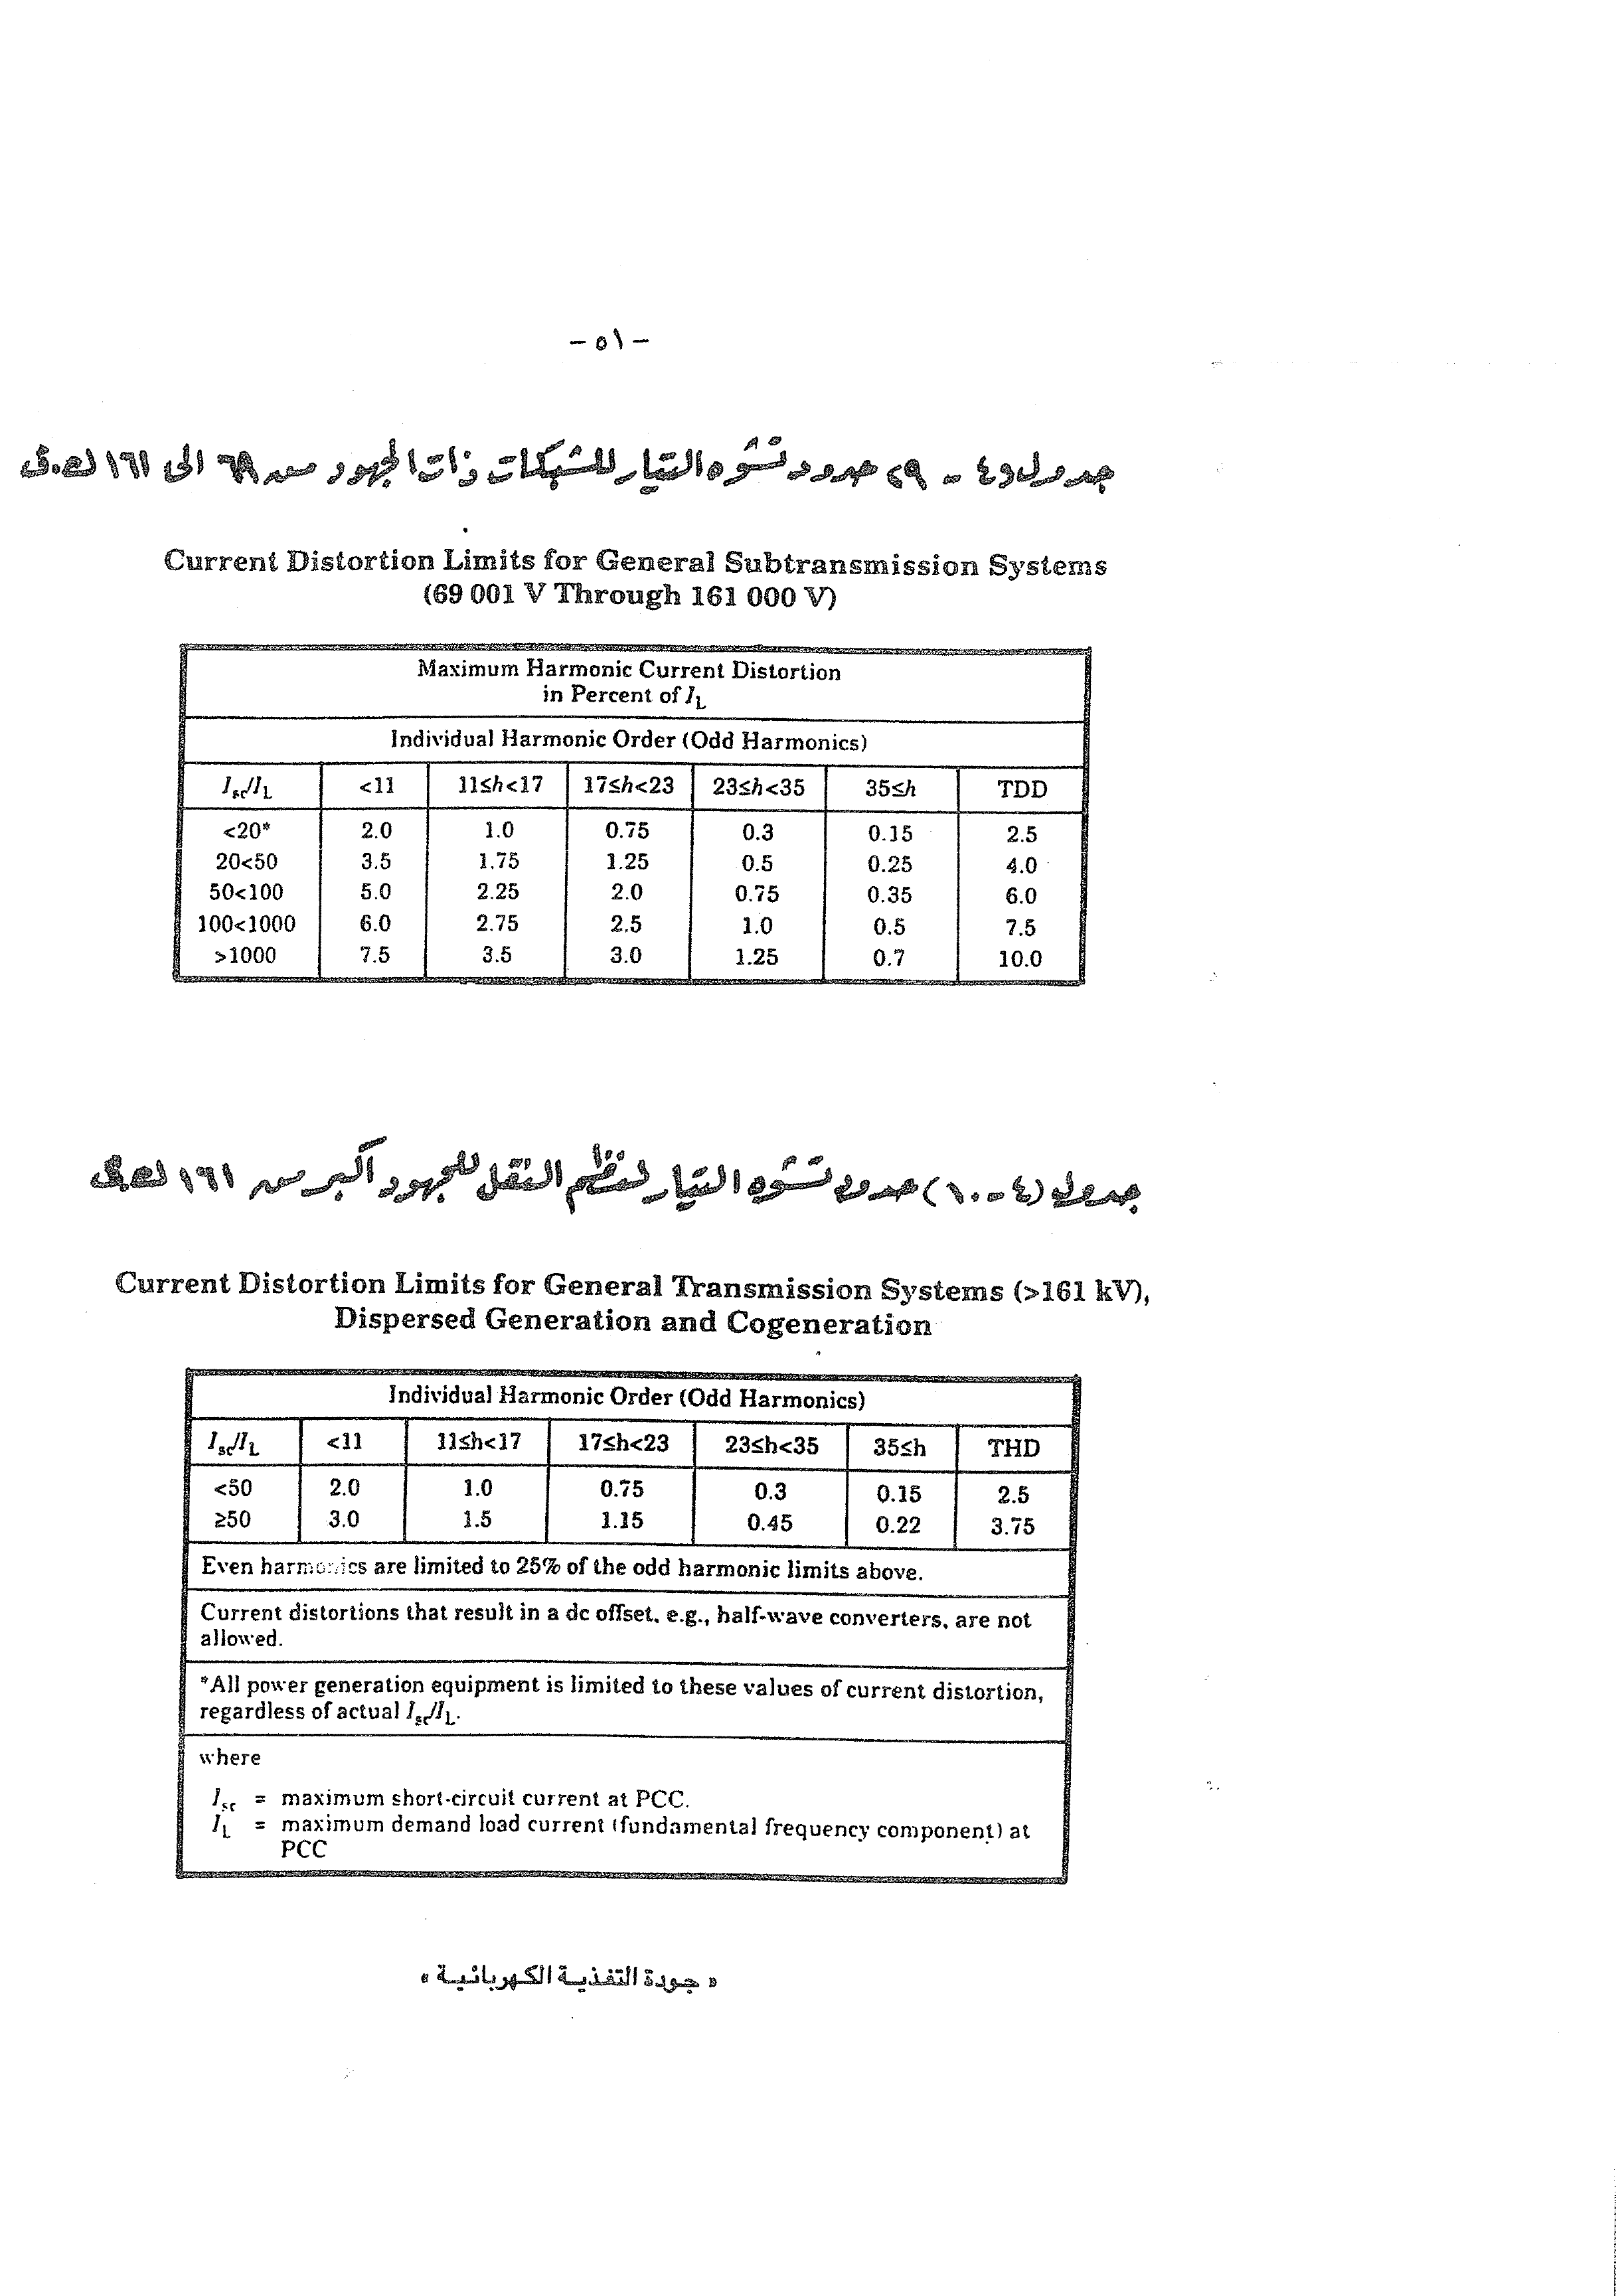 - ٥١ -
جدول (٤ - ٩) حدود تشوه التيار للشبكات ذات الجهود من ٦٩ الى ١٦١ ك.ف
Current Distortion Limits for General Subtransmission Systems
(69 001 V Through 161 000 V)
Maximum Harmonic Current Distortion
in Percent of I_L
Individual Harmonic Order (Odd Harmonics)
I_sc/I_L <11 11≤h<17 17≤h<23 23≤h<35 35≤h TDD
<20* 2.0 1.0 0.75 0.3 0.15 2.5
20<50 3.5 1.75 1.25 0.5 0.25 4.0
50<100 5.0 2.25 2.0 0.75 0.35 6.0
100<1000 6.0 2.75 2.5 1.0 0.5 7.5
>1000 7.5 3.5 3.0 1.25 0.7 10.0
جدول (٤ - ١٠) حدود تشوه التيار لنظم النقل للجهود أكبر من ١٦١ ك.ف
Current Distortion Limits for General Transmission Systems (>161 kV),
Dispersed Generation and Cogeneration
Individual Harmonic Order (Odd Harmonics)
I_sc/I_L <11 11≤h<17 17≤h<23 23≤h<35 35≤h THD
<50 2.0 1.0 0.75 0.3 0.15 2.5
≥50 3.0 1.5 1.15 0.45 0.22 3.75
Even harmonics are limited to 25% of the odd harmonic limits above.
Current distortions that result in a dc offset, e.g., half-wave converters, are not
allowed.
*All power generation equipment is limited to these values of current distortion,
regardless of actual I_sc/I_L.
where
I_sc = maximum short-circuit current at PCC.
I_L = maximum demand load current (fundamental frequency component) at
PCC
« جودة التغذية الكهربائية »